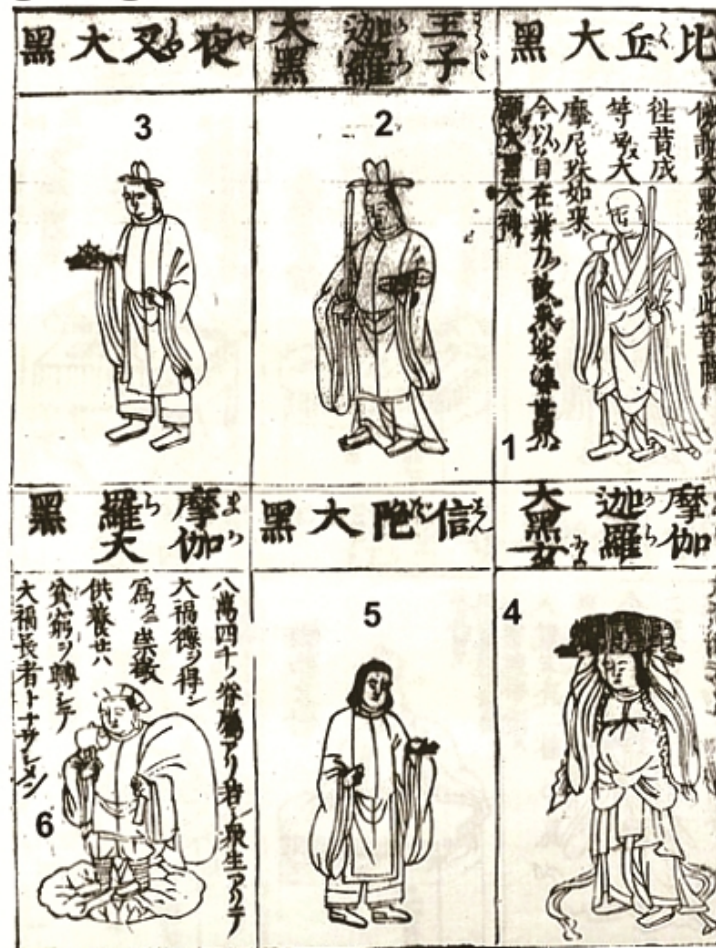 比丘大黑
徃昔成
等 大
摩尼珠如来
今以自在業力故来娑婆世界
大黑天神
1
王子
迦羅
大黑
2
夜叉大黑
3
摩伽
迦羅
大黑女
4
信陁大黑
5
摩伽
羅大
黑
八萬四千ノ眷屬アリ若シ衆生アリテ
大福德ヲ得ン
爲ニ崇敬
供養セハ
貧窮ヲ轉シテ
大福長者トナサシメン
6